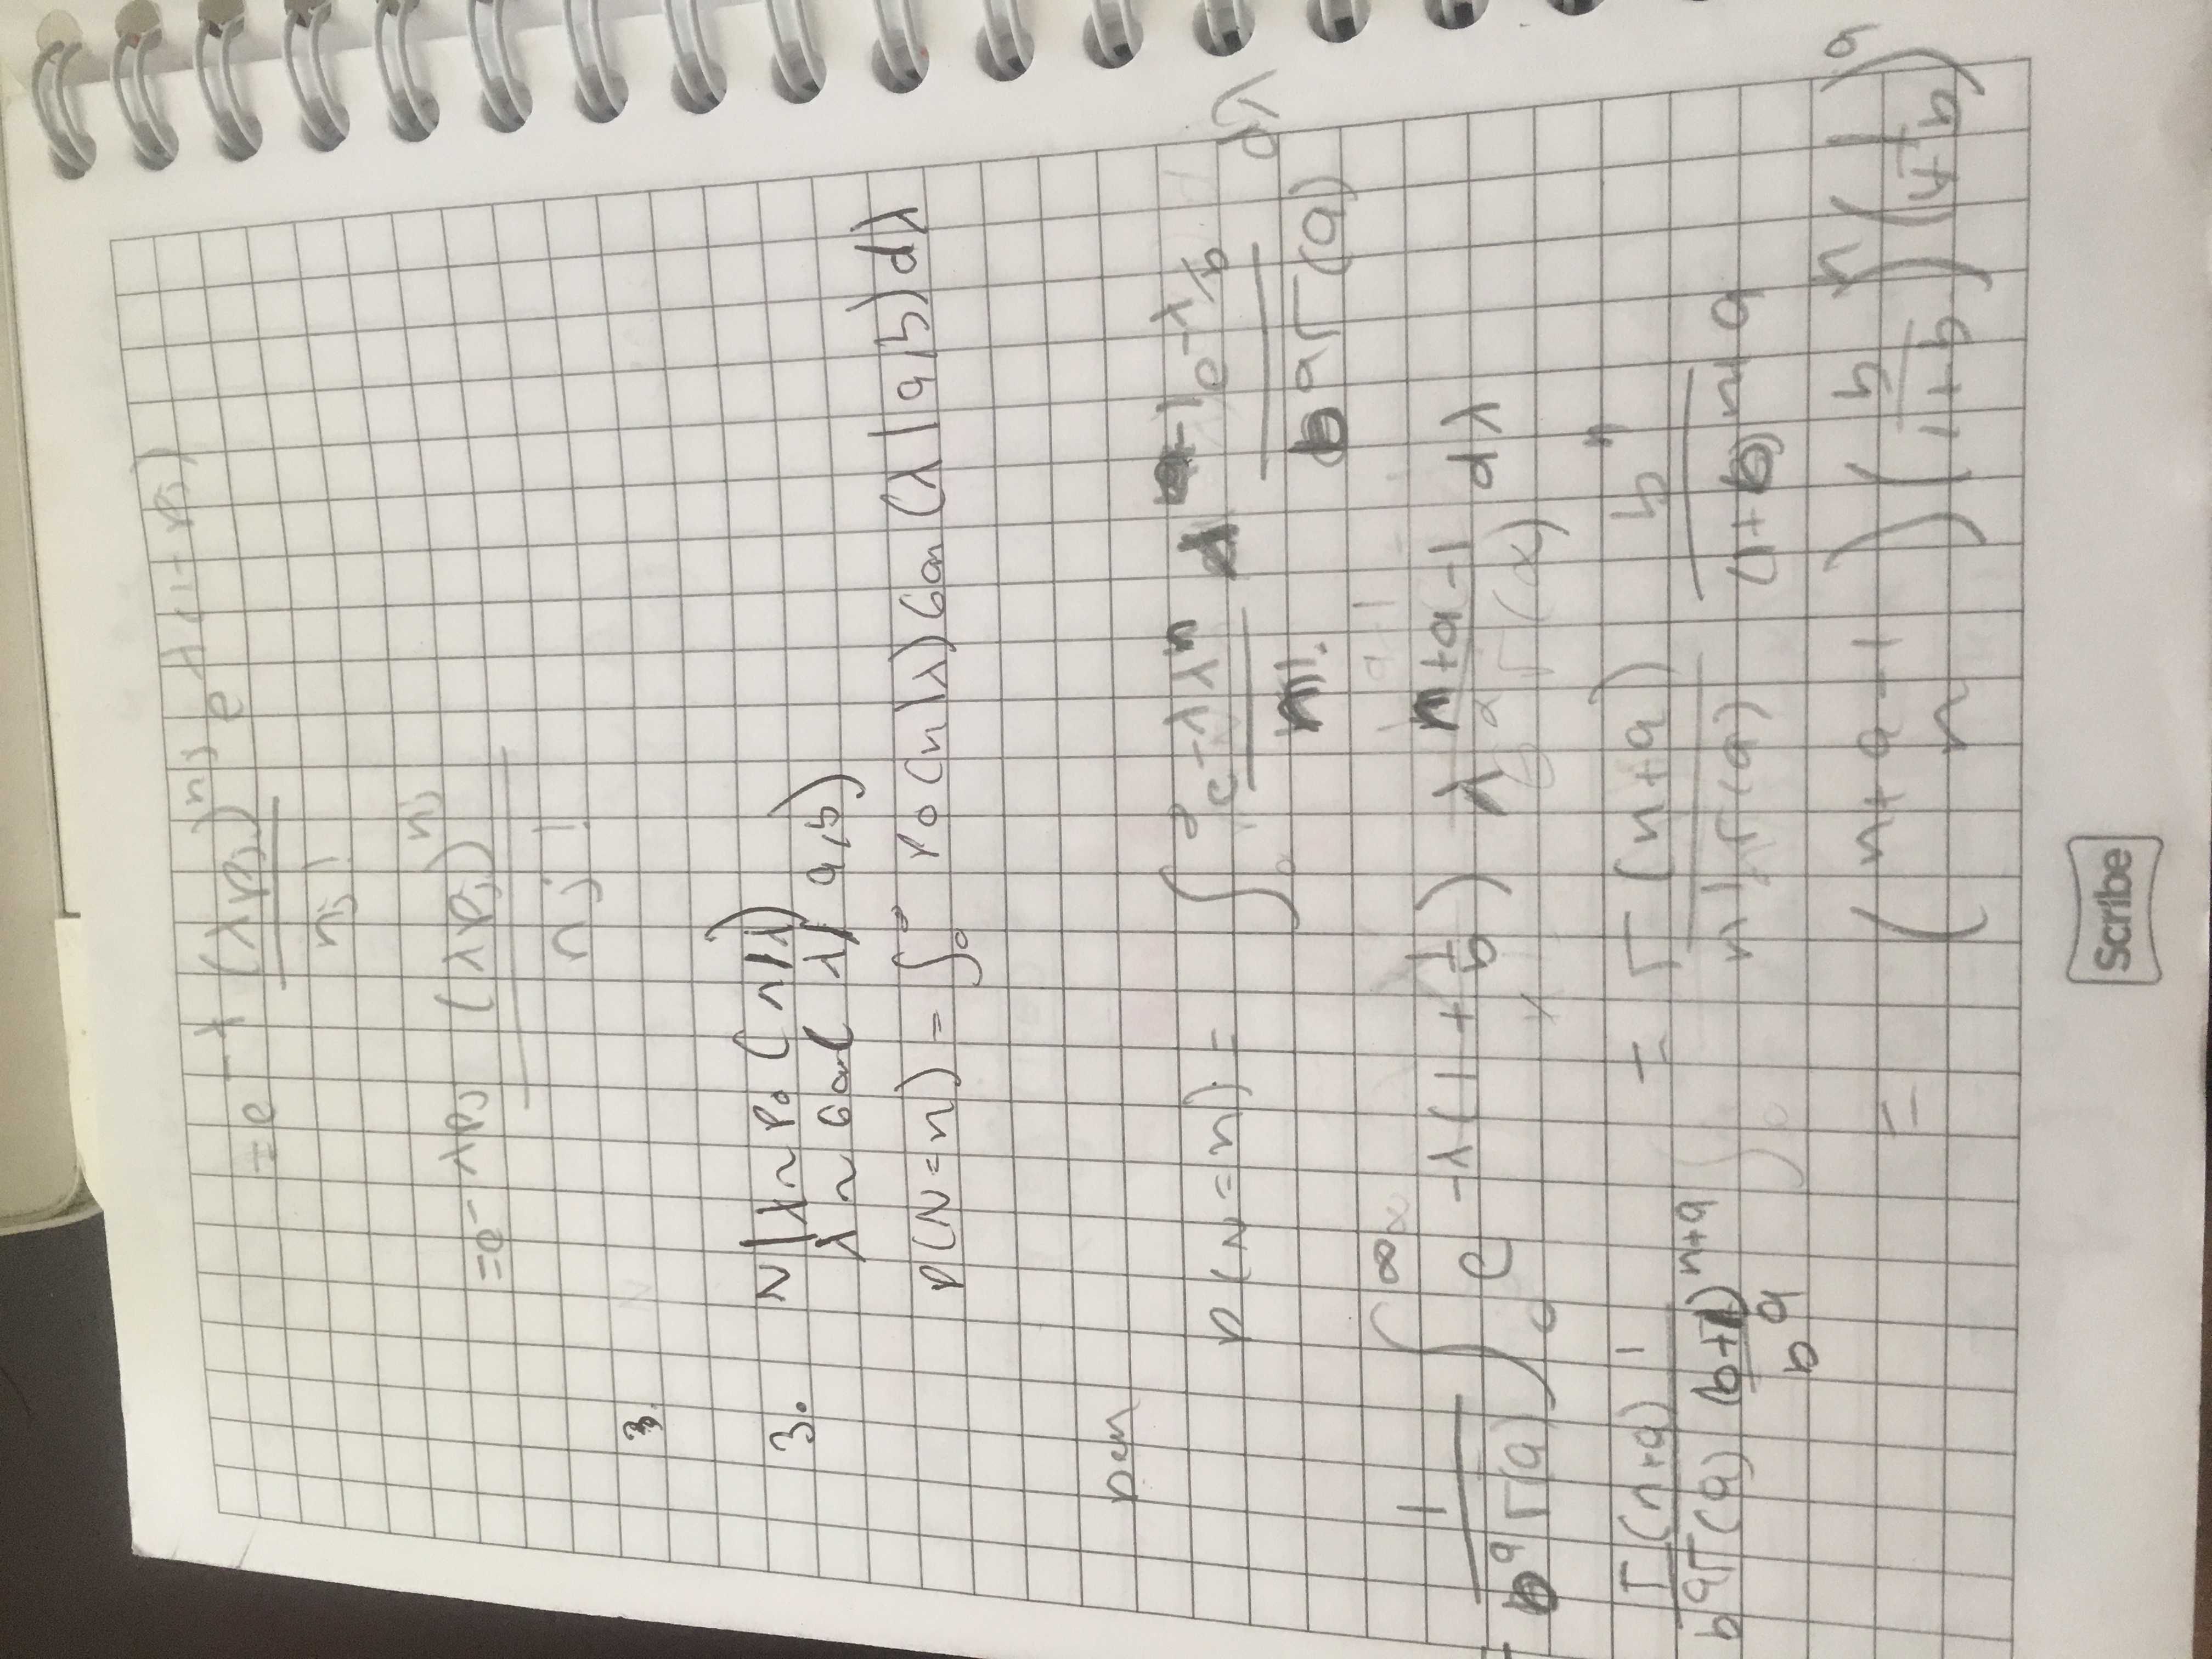 = e^{-λ} (λp_j)^{n_j} / n_j! e^{λ(1-p_j)}
= e^{-λp_j} (λp_j)^{n_j} / n_j!
3.
3. N|λ ~ Po(n|λ)
λ ~ Gan(λ| a,b)
P(N=n) = ∫_0^∞ Po(n|λ) Gan(λ|a,b) dλ
Dem
P(N=n) = ∫_0^∞ e^{-λ} λ^n / n! λ^{a-1} e^{-λ/b} / b^a Γ(a) dλ
= 1 / b^a Γ(a) ∫_0^∞ e^{-λ(1 + 1/b)} λ^{n+a-1} dλ
Γ(n+a) 1 / b^a Γ(a) (b+1)^{n+a} / b^a = Γ(n+a) / n! Γ(a) b^n / (1+b)^{n+a}
= (n+a-1 n) (b / 1+b)^n (1 / 1+b)^a
Scribe